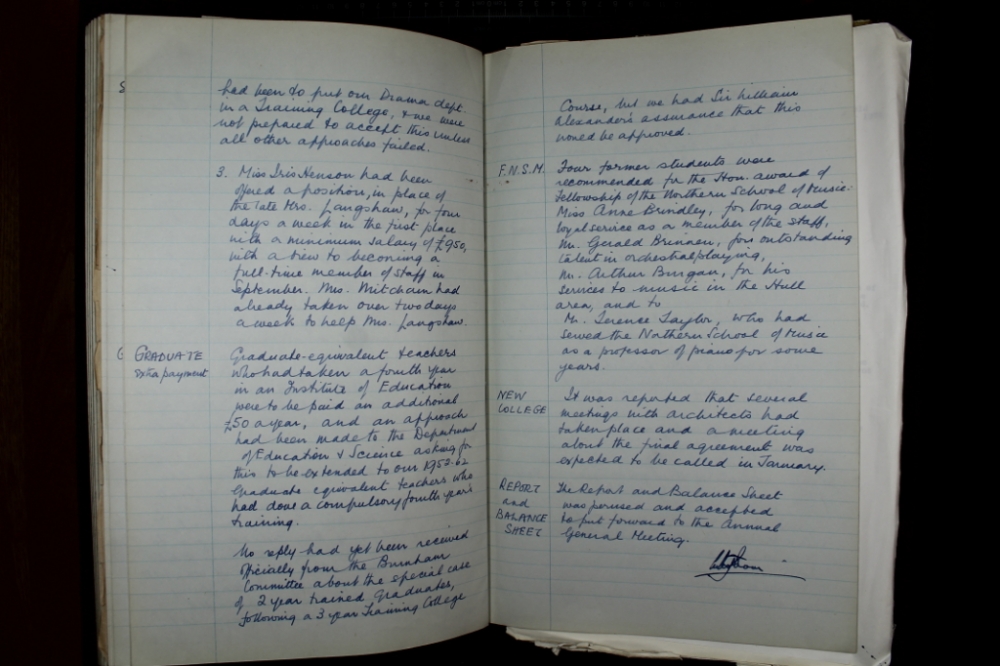 had been to put our Drama dept.
in a Training College, & we were
not prepared to accept this unless
all other approaches failed.
3. Miss Iris Henson had been
offered a position, in place of
the late Mrs. Langshaw, for four
days a week in the first place
with a minimum salary of £950,
with a view to becoming a
full-time member of staff in
September. Mrs. Mitcham had
already taken over two days
a week to help Mrs. Langshaw.
GRADUATE
extra payment
Graduate-equivalent teachers
who had taken a fourth year
in an Institute of Education
were to be paid an additional
£50 a year, and an approach
had been made to the Department
of Education & Science asking for
this to be extended to our 1952-62
Graduate equivalent teachers who
had done a compulsory fourth years
training.
No reply had yet been received
officially from the Burnham
Committee about the special case
of 2 year trained graduates,
following a 3 year Training College
Course, but we had Sir William
Alexander's assurance that this
would be approved.
F.N.S.M.
Four former students were
recommended for the Hon. award of
Fellowship of the Northern School of Music.
Miss Anne Brindley, for long and
loyal service as a member of the staff,
Mr. Gerald Brinnen, for outstanding
talent in orchestral playing,
Mr. Arthur Burgan, for his
services to music in the Hull
area, and to
Mr. Terence Taylor, who had
served the Northern School of Music
as a professor of piano for some
years.
NEW
COLLEGE
It was reported that several
meetings with architects had
taken place and a meeting
about the final agreement was
expected to be called in January.
REPORT
and
BALANCE
SHEET
The Report and Balance Sheet
was perused and accepted
to put forward to the Annual
General Meeting.